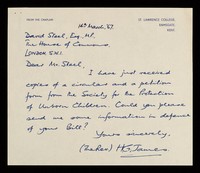 FROM THE CHAPLAIN
ST. LAWRENCE COLLEGE,
RAMSGATE,
KENT.
14th March, '67
David Steel, Esq., M.P.
The House of Commons,
LONDON S.W.1.
Dear Mr. Steel,
I have just received
copies of a circular and a petition
form from the Society for the Protection
of Unborn Children. Could you please
send me some information in defence
of your Bill?
Yours sincerely,